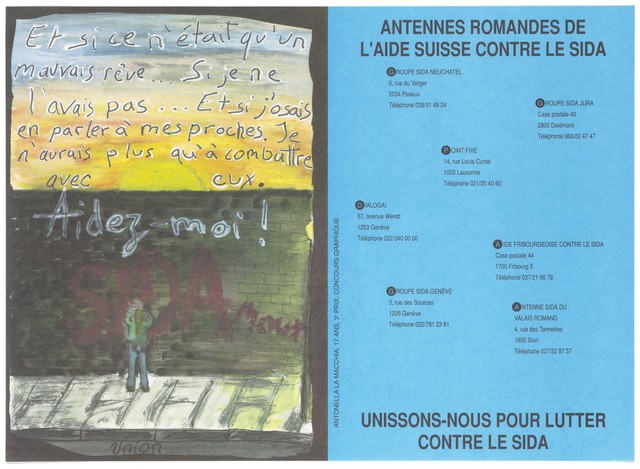 Et si ce n'était qu'un
mauvais rêve... Si je ne
l'avais pas... Et si j'osais
en parler à mes proches. Je
n'aurais plus qu'à combattre
avec eux.
Aidez-moi!
SIDA
Union
ANTONELLA LA MACCHIA, 17 ANS, 3e PRIX, CONCOURS GRAPHIQUE
ANTENNES ROMANDES DE
L'AIDE SUISSE CONTRE LE SIDA
GROUPE SIDA NEUCHATEL
6, rue du Verger
2034 Peseux
Téléphone 038/31 49 24
GROUPE SIDA JURA
Case postale 40
2800 Delémont
Téléphone 066/22 47 47
POINT FIXE
14, rue Louis-Curtat
1005 Lausanne
Téléphone 021/20 40 60
DIALOGAI
57, avenue Wendt
1203 Genève
Téléphone 022/340 00 00
AIDE FRIBOURGEOISE CONTRE LE SIDA
Case postale 44
1700 Fribourg 5
Téléphone 037/21 96 78
GROUPE SIDA GENÈVE
3, rue des Sources
1205 Genève
Téléphone 022/781 23 81
ANTENNE SIDA DU
VALAIS ROMAND
4, rue des Tanneries
1950 Sion
Téléphone 027/22 87 57
UNISSONS-NOUS POUR LUTTER
CONTRE LE SIDA